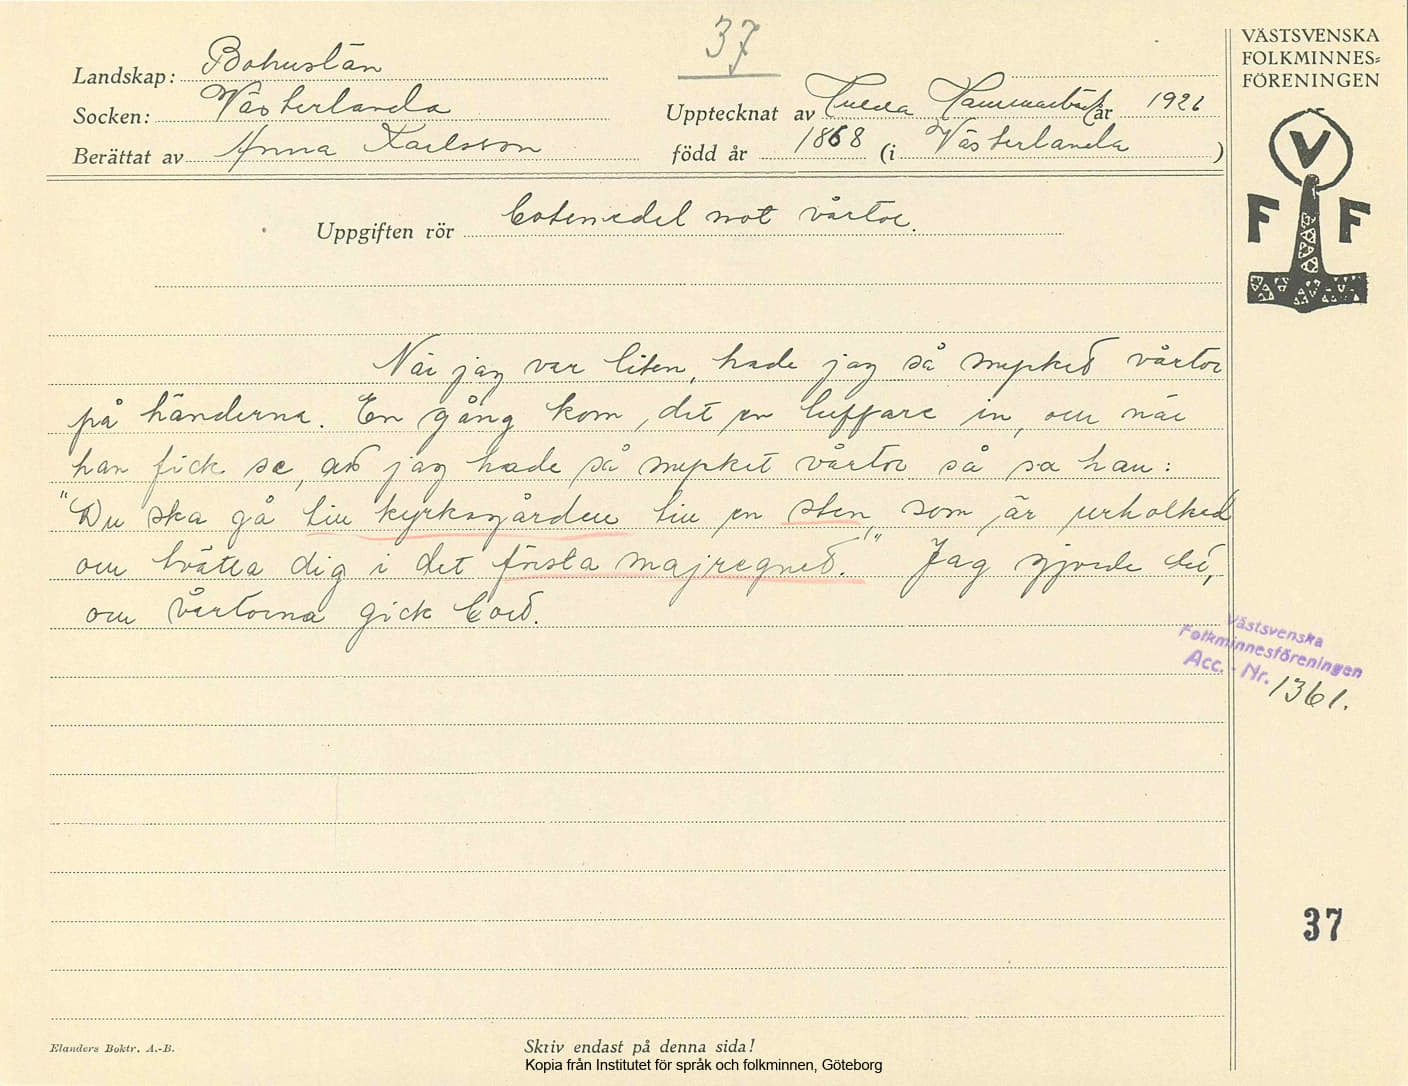 37
VÄSTSVENSKA
FOLKMINNES=
FÖRENINGEN
Landskap: Bohuslän
Socken: Västerlanda
Upptecknat av Tulla Hammarbäck år 1926
Berättat av Anna Karlsson född år 1868 (i Västerlanda )
V
F F
Uppgiften rör Botemedel mot vårtor.
När jag var liten, hade jag så mycket vårtor
på händerna. En gång kom det en luffare in, och när
han fick se, att jag hade så mycket vårtor så sa han:
"Du ska gå till kyrkogården till en sten, som är urholkad
och tvätta dig i det första majregnet." Jag gjorde det,
och vårtorna gick bort.
Västsvenska
Folkminnesföreningen
Acc. - Nr. 1361.
37
Elanders Boktr. A.-B.
Skriv endast på denna sida!
Kopia från Institutet för språk och folkminnen, Göteborg